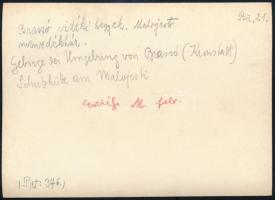 Br. 21.
Brassó vidéki hegyek. Malajesti
menedékház.
Gebirge der Umgebung von Brassó (Kronstadt)
Schutzhütte am Malajesti
M. felv.
(Plt: 376.)